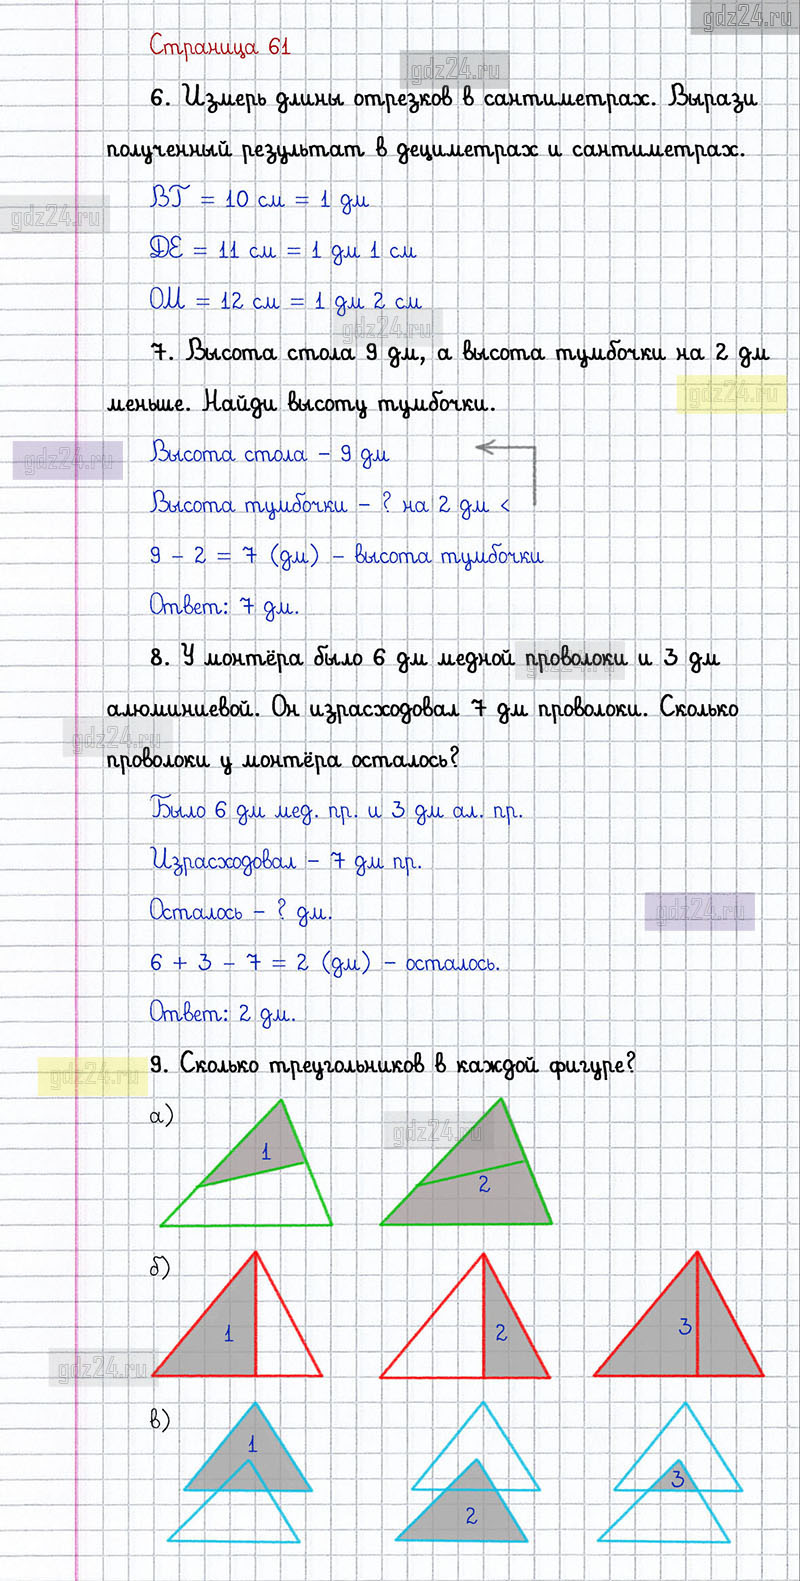 gdz24.ru
Страница 61
gdz24.ru
6. Измерь длины отрезков в сантиметрах. Вырази
полученный результат в дециметрах и сантиметрах.
ВТ = 10 см = 1 дм
gdz24.ru
DE = 11 см = 1 дм 1 см
ОМ = 12 см = 1 дм 2 см
gdz24.ru
7. Высота стола 9 дм, а высота тумбочки на 2 дм
gdz24.ru
меньше. Найди высоту тумбочки.
Высота стола – 9 дм
gdz24.ru
Высота тумбочки – ? на 2 дм <
9 – 2 = 7 (дм) – высота тумбочки
Ответ: 7 дм.
8. У монтёра было 6 дм медной проволоки и 3 дм
gdz24.ru
алюминиевой. Он израсходовал 7 дм проволоки. Сколько
gdz24.ru
проволоки у монтёра осталось?
Было 6 дм мед. пр. и 3 дм ал. пр.
Израсходовал – 7 дм пр.
Осталось – ? дм.
gdz24.ru
6 + 3 – 7 = 2 (дм) – осталось.
Ответ: 2 дм.
9. Сколько треугольников в каждой фигуре?
gdz24.ru
а)
gdz24.ru
1
2
б)
1
2
3
gdz24.ru
в)
1
2
3